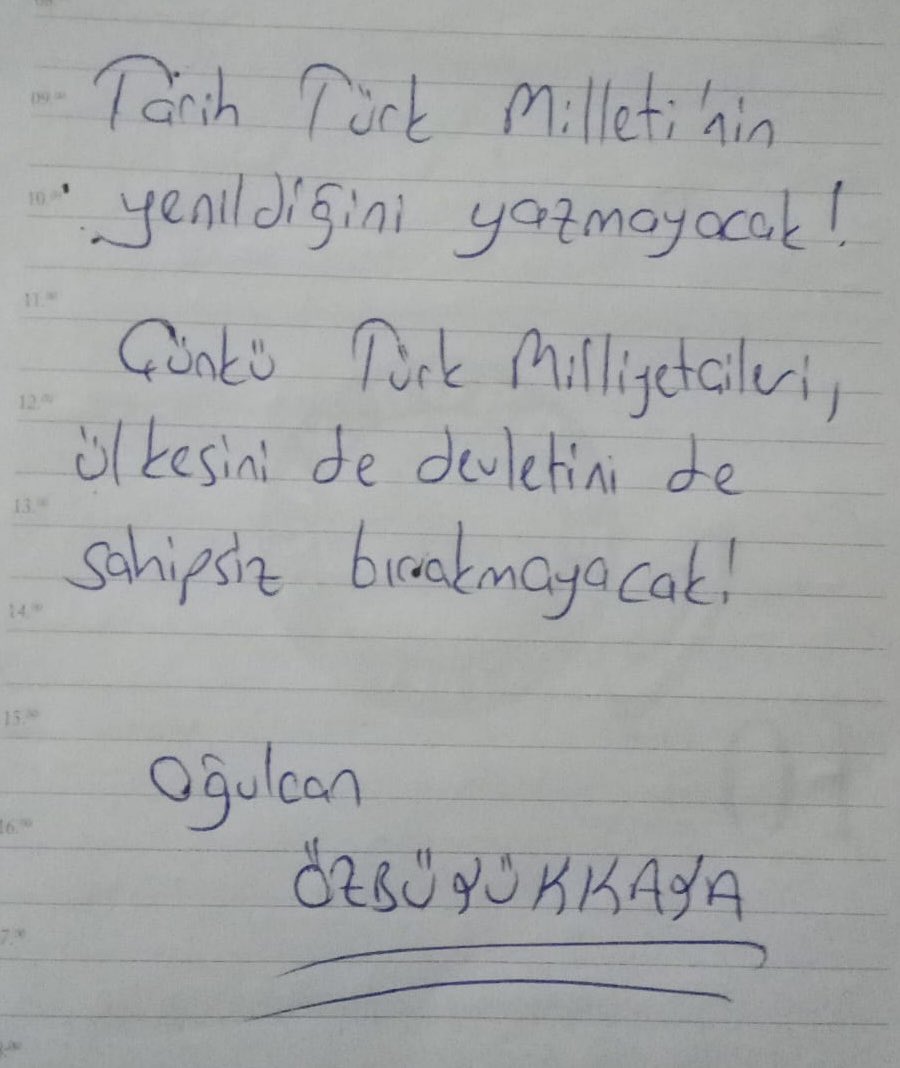 09.00
Tarih Türk Milleti'nin
10.00
yenildiğini yazmayacak!
11.00
Çünkü Türk Milliyetçileri,
12.00
ülkesini de devletini de
13.00
sahipsiz bırakmayacak!
14.00
15.00
Oğulcan
16.00
ÖZBÜYÜKKAYA